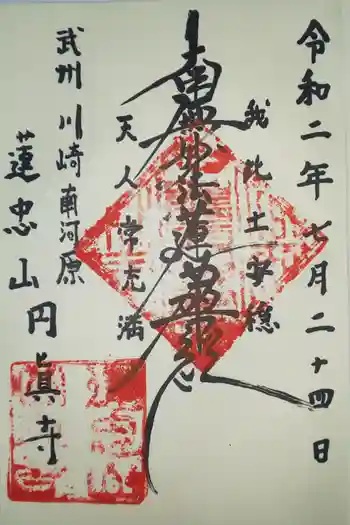 令和二年七月二十四日
我此土安穏
南無妙法蓮華経
天人常充満
武州川崎南河原
蓮忠山円眞寺